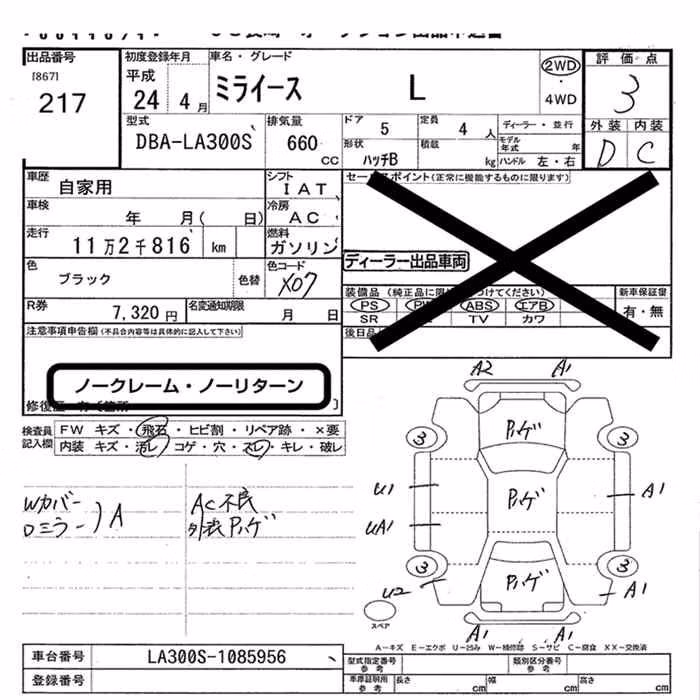 出品番号
[867]
217
初度登録年月
平成
24 4 月
車名・グレード
ミライース L
2WD
・
4WD
評価点
3
外装 内装
D C
型式
DBA-LA300S
排気量
660
CC
ドア 5
定員 4 人
ディーラー・並行
形状
ハッチB
積載
kg
モデル
年式 年
ハンドル 左・右
車歴
自家用
シフト
IAT
車検
年 月( 日)
冷房
AC
走行
11万2千816 km
燃料
ガソリン
色
ブラック
色替
色コード
X07
R券
7,320円
名変通知期限
月 日
セールスポイント(正常に機能するものに限ります)
ディーラー出品車両
装備品
PS ABS エアB
SR TV カワ
新車保証書
有・無
後日品
注意事項申告欄(不具合内容等は具体的に記入して下さい)
ノークレーム・ノーリターン
検査員
記入欄
FW キズ・飛石・ヒビ割・リペア跡・×要
内装 キズ・汚レ・コゲ・穴・スレ・キレ・破レ
Wカバー
Dミラー )A
AC不良
外装ハゲ
A2 A1
ハゲ
3 3
U1 ハゲ A1
UA1
3 3
U2 ハゲ A1
A1 A1
スペア
A−キズ E−エクボ U−凹み W−補修跡 S−サビ C−腐食 XX−交換済
車台番号
LA300S-1085956
登録番号
型式指定番号
参考
類別区分番号
参考
車庫証明用
参考
長さ cm
幅 cm
高さ cm